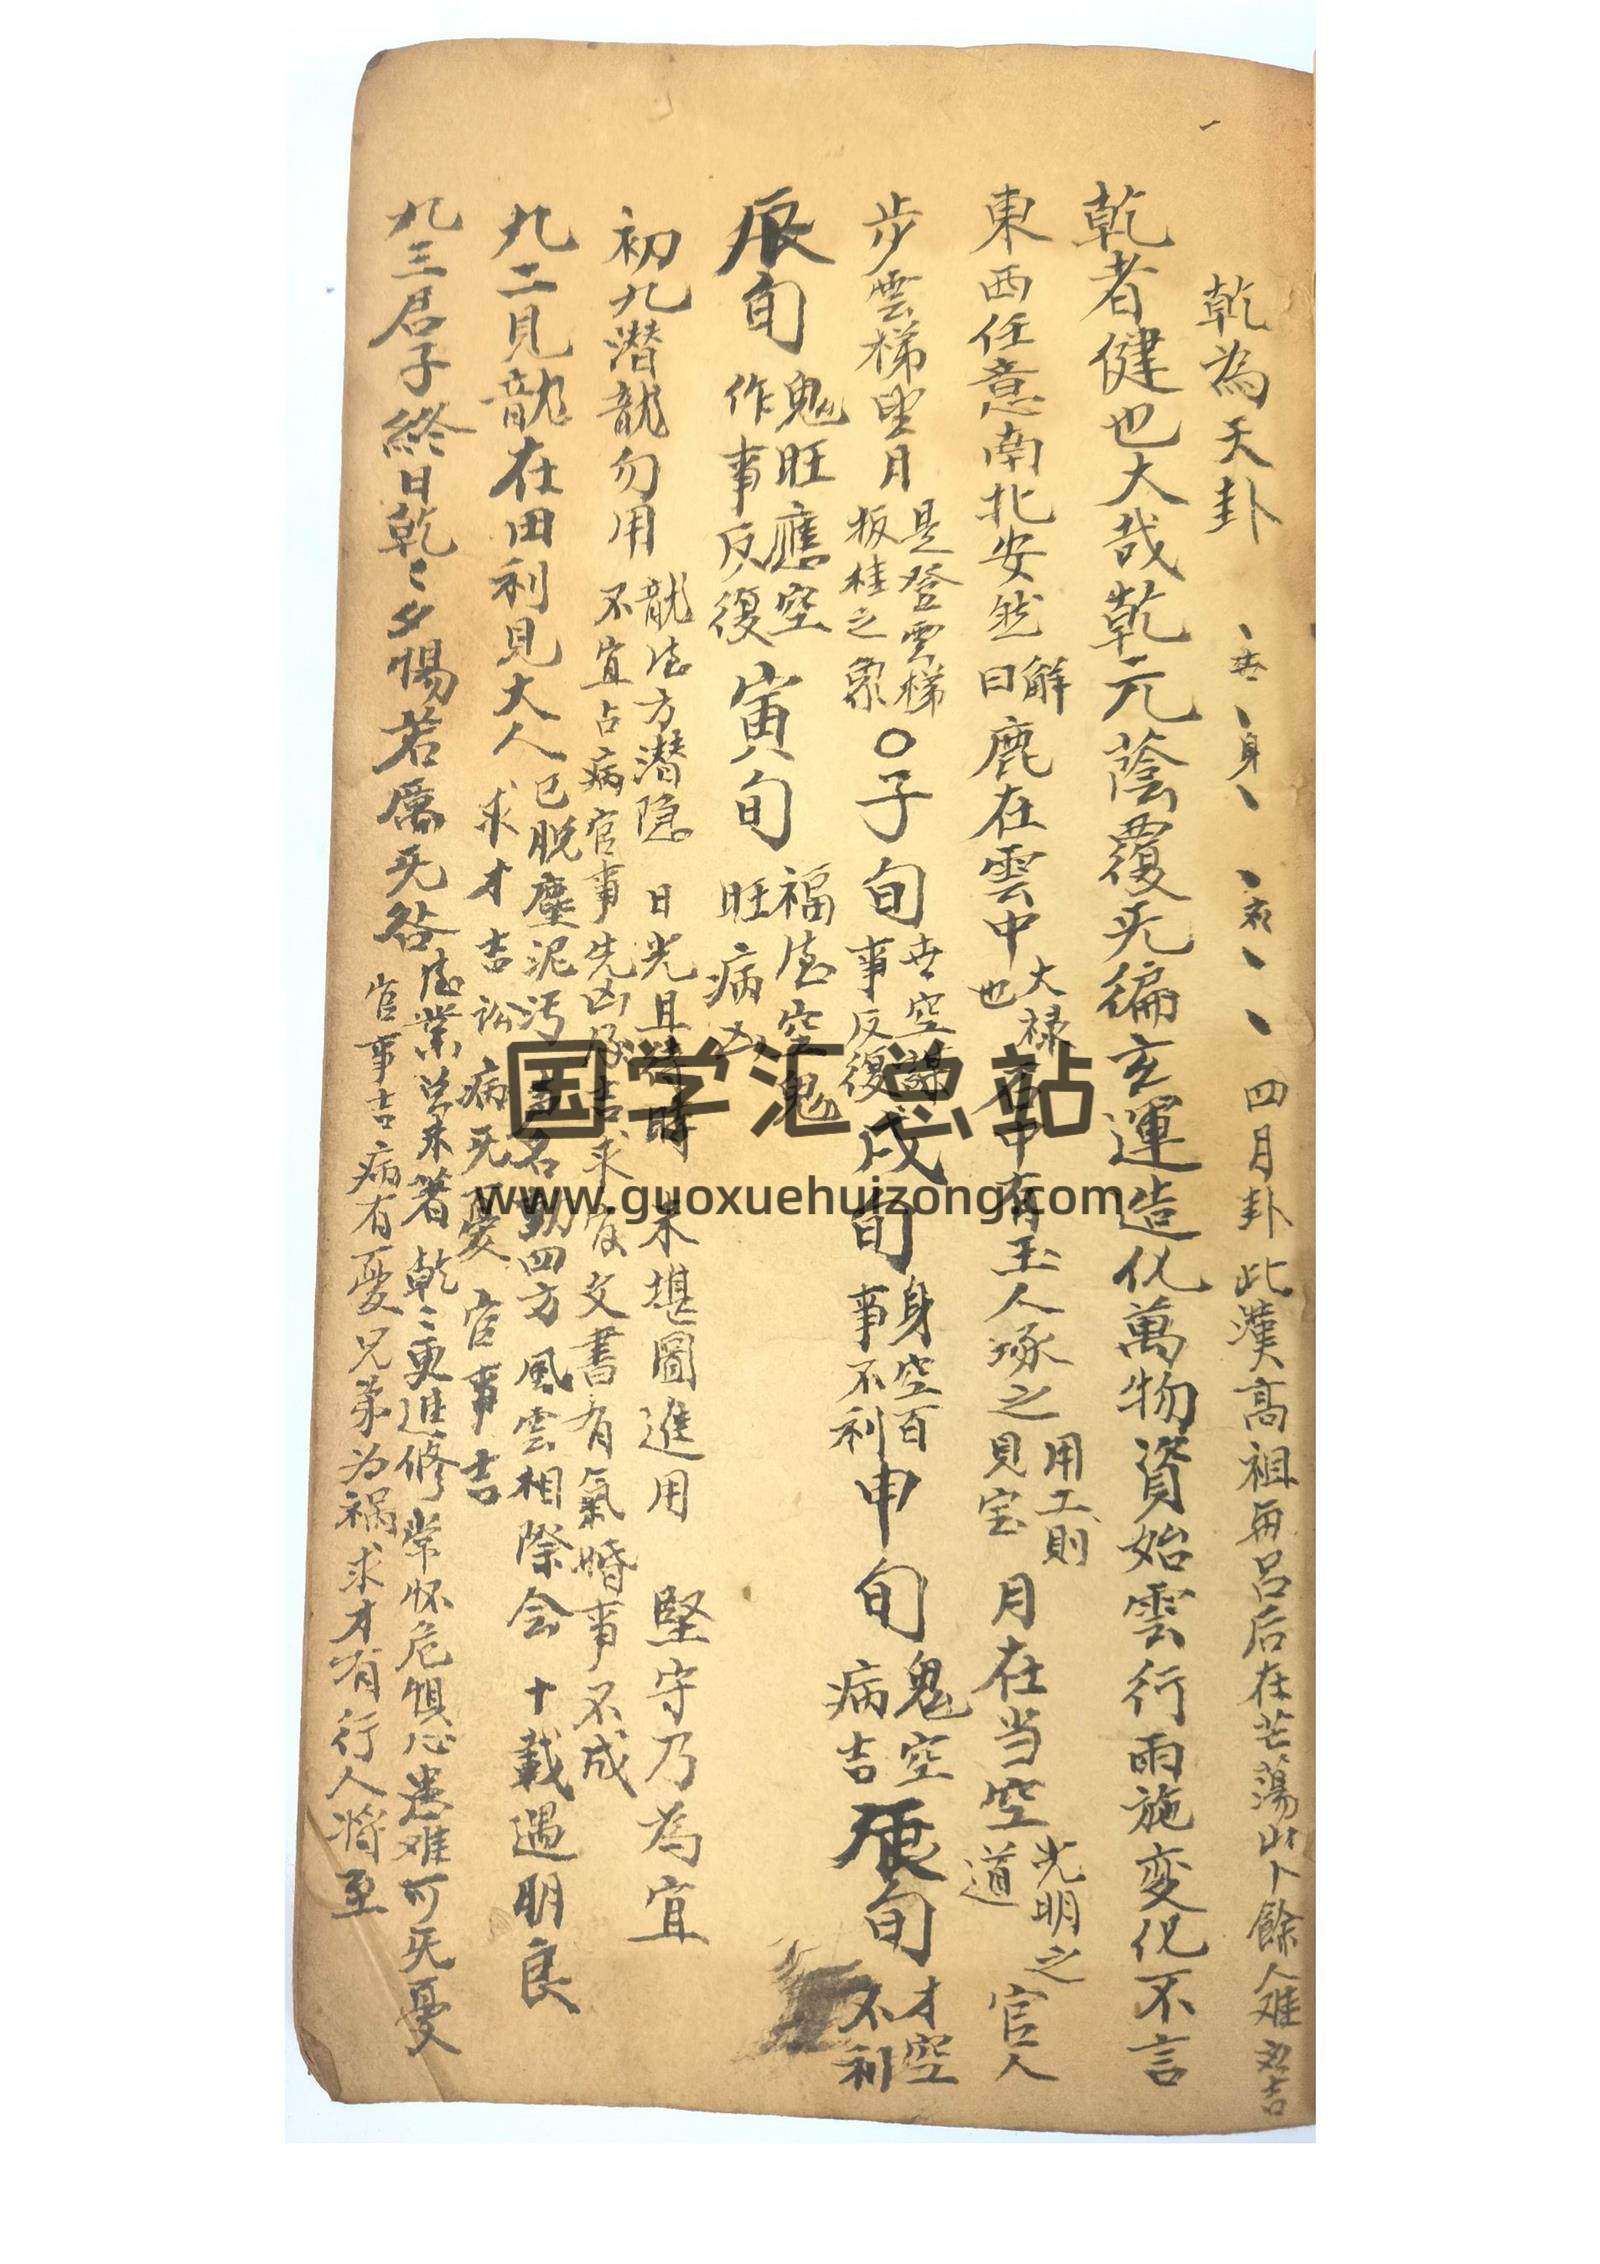 一
乾為天卦 、世、身、 、衣、 、 四月卦 此漢高祖與呂后在芒蕩山卜 餘人难為吉
乾者健也大哉乾元蔭覆无徧玄運造化萬物資始雲行雨施变化不言
東西任意南北安然
解曰
鹿在雲中
大禄也
石中有玉人琢之
用工則見宝
月在当空
光明之道
官人
步雲梯望月
是登雲梯
扳桂之象
〇子旬
世空謀
事反復
戌旬
身空百
事不利
申旬
鬼空
病吉
辰旬
才空
不利
辰旬
鬼旺應空
作事反復
寅旬
福德空鬼
旺病凶
初九潛龍勿用
龍德方潛隐 日光且待時 未堪圖進用 堅守乃為宜
不宜占病官事先凶後吉求官文書有氣婚事不成
九二見龍在田利見大人
已脱塵泥污 名動四方 風雲相際会 十載遇明良
求才吉訟病无憂官事吉
九三君子終日乾〻夕惕若厲无咎
德業算未著 乾〻更進修 常怀危惧心 患难可无憂
官事吉病有憂兄弟为祸求才有行人將至
国学汇总站
www.guoxuehuizong.com